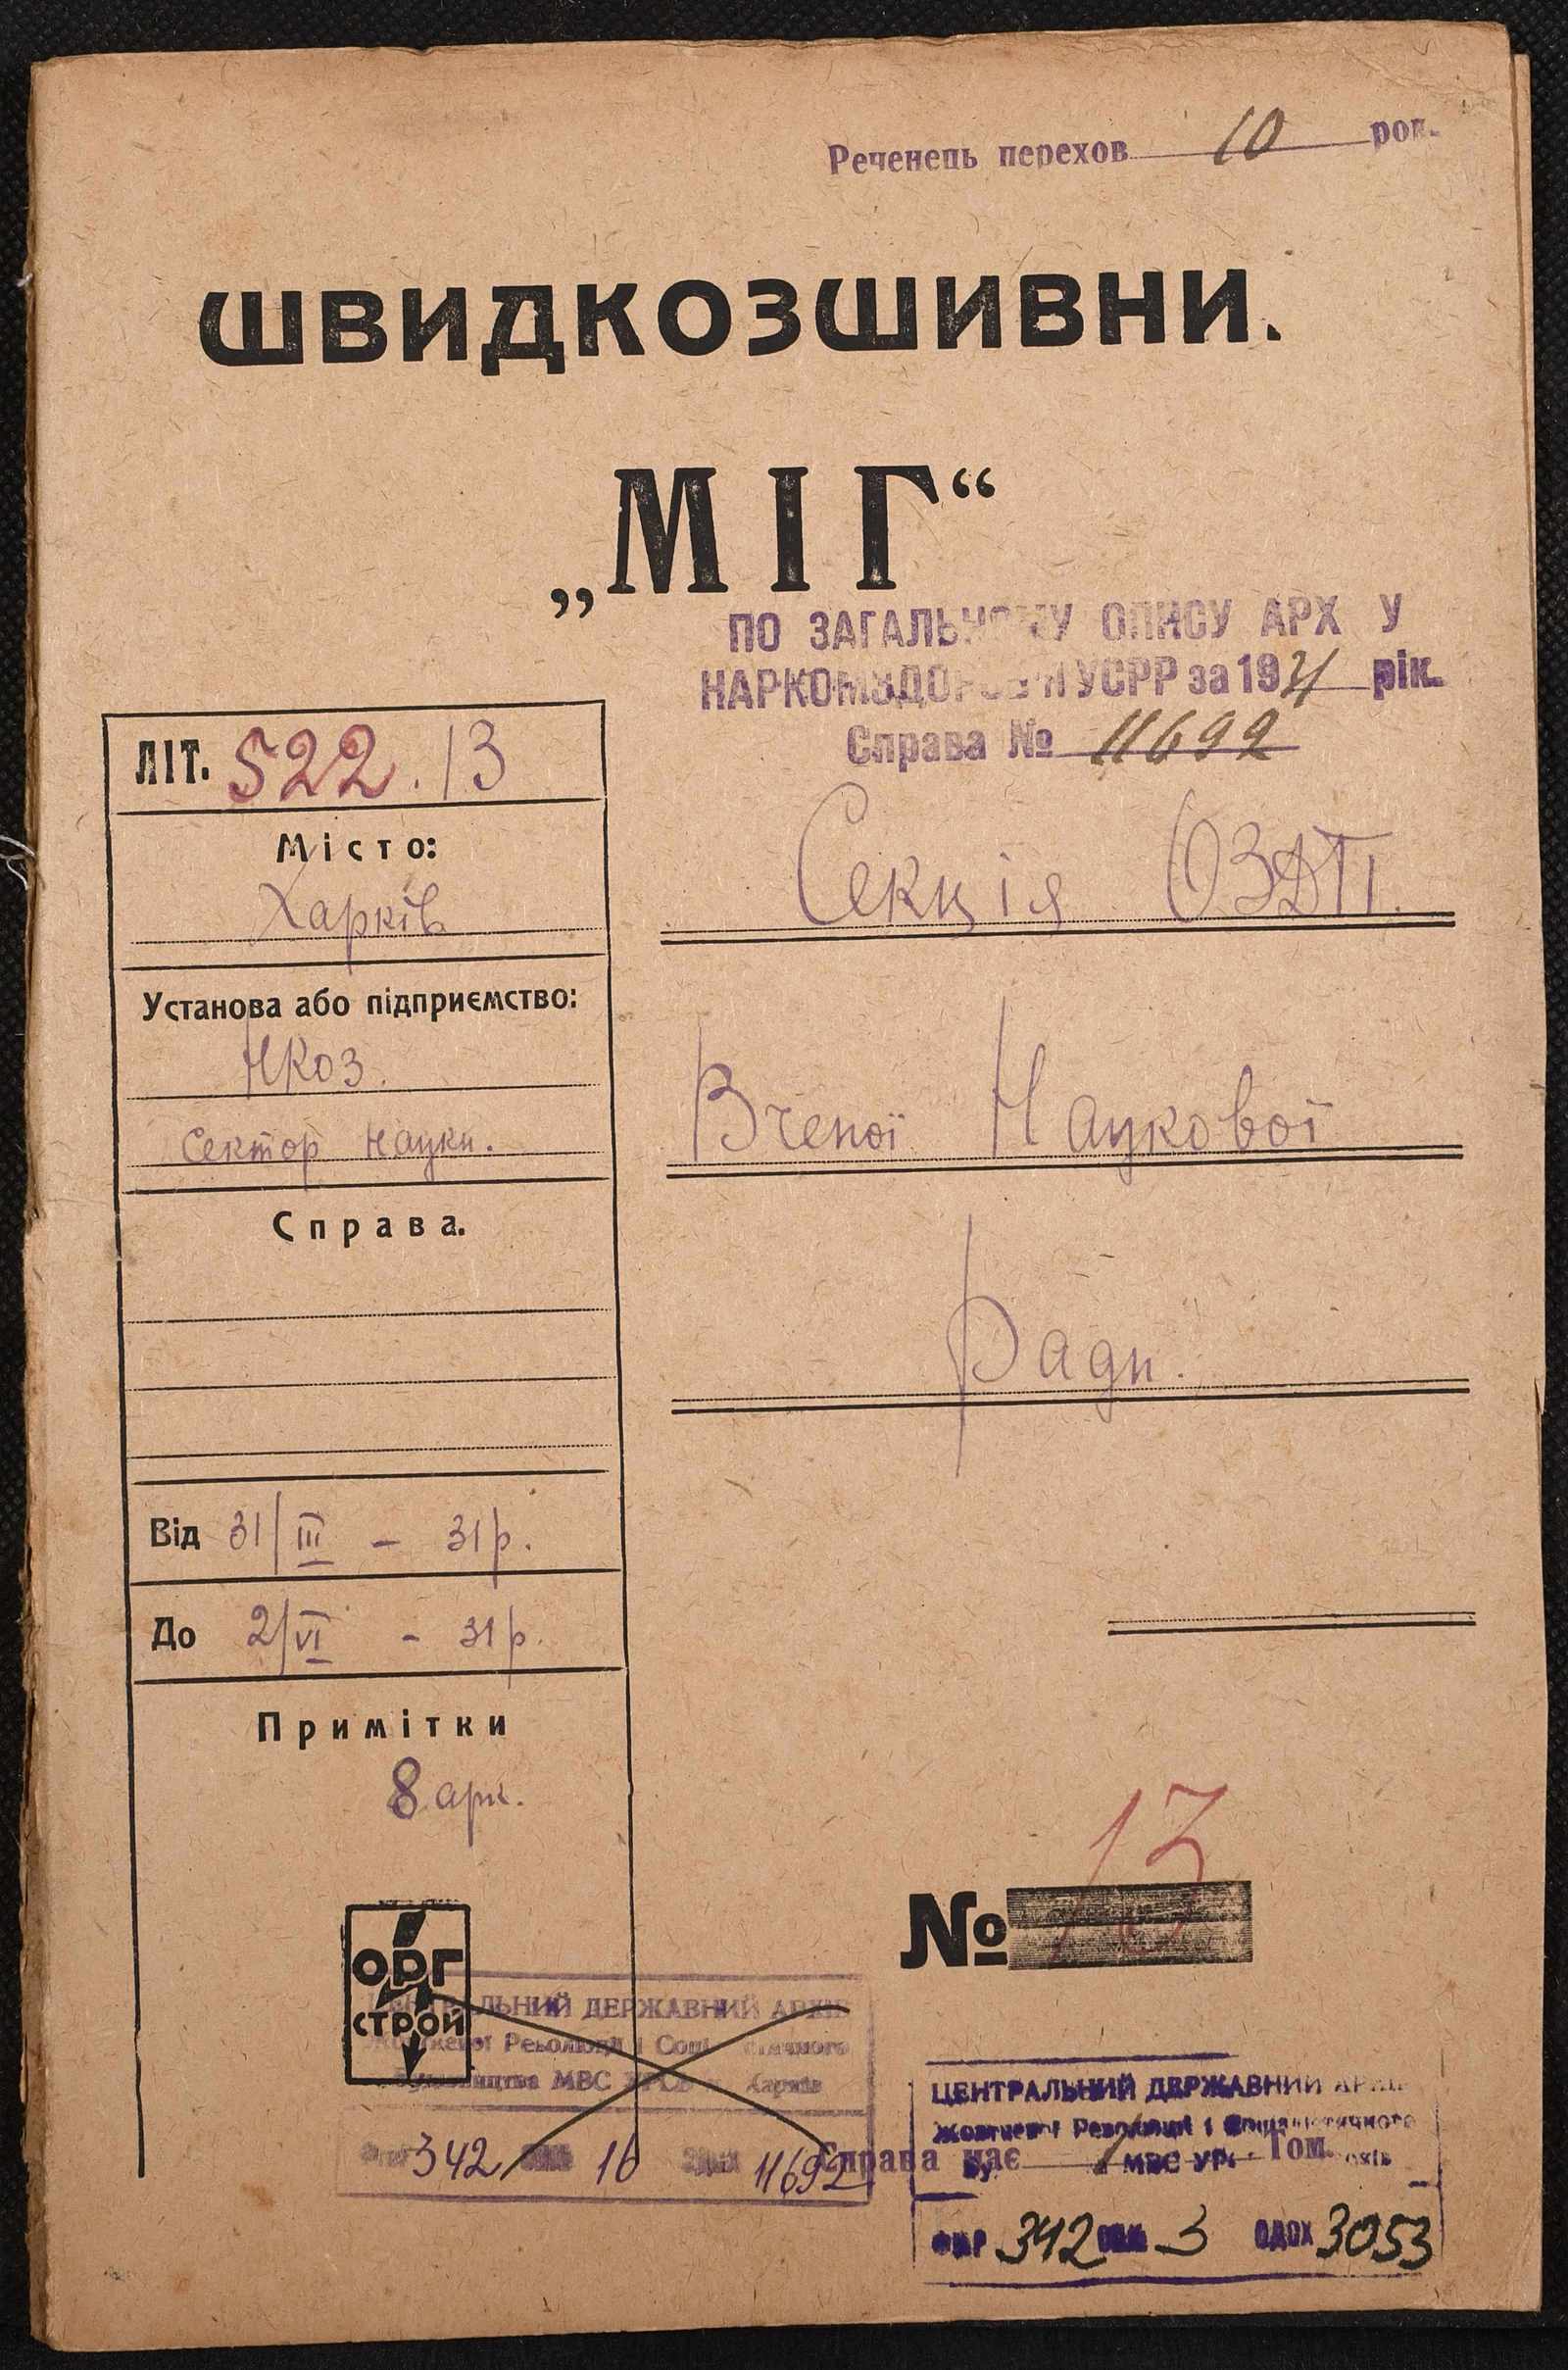 Реченець перехов 10 рок.
ШВИДКОЗШИВНИ.
„МІГ“
ПО ЗАГАЛЬНОМУ ОПИСУ АРХ У
НАРКОМЗДОРОВ'Я УСРР за 1931 рік.
Справа № 11692
ЛІТ. 522.13
Місто:
Харків
Установа або підприємство:
НКОЗ.
Сектор Науки.
Справа.
Від 31/III - 31 р.
До 2/VI - 31 р.
Примітки
8 арк.
Секція ОЗДП.
Вченої Наукової
Ради.
13
№
ОРГ
СТРОЙ
ЦЕНТРАЛЬНИЙ ДЕРЖАВНИЙ АРХІВ
Жовтневої Революції і Соціалістичного
Будівництва МВС УРСР Харків
342 16 11692
Справа має 1 Том.
ЦЕНТРАЛЬНИЙ ДЕРЖАВНИЙ АРХІВ
Жовтневої Революції і Соціалістичного
Бу МВС УР
342 3 3053